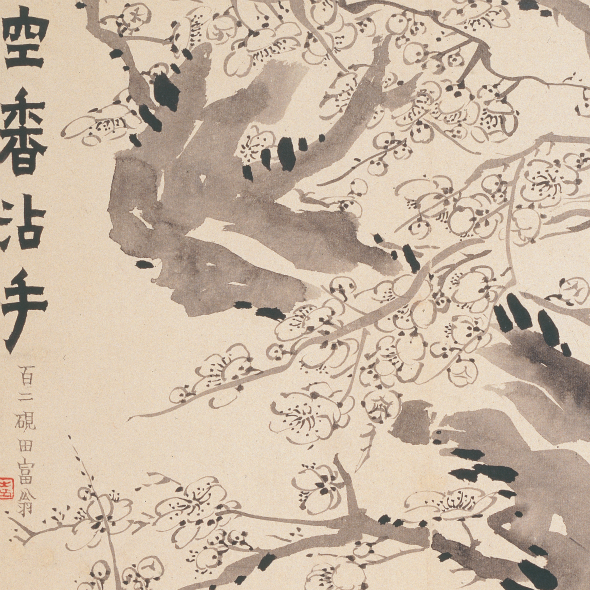 空香沾手
百二硯田富翁